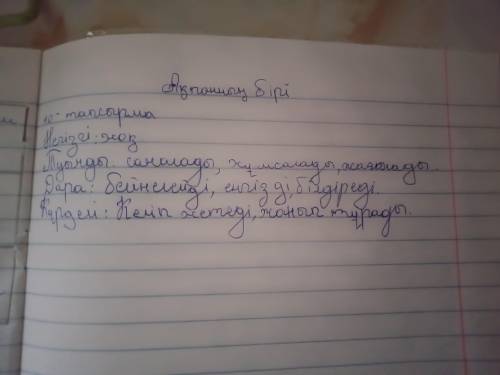 Ақпанның бірі
10-тапсырма
Негізгі: жоқ
Туынды: саналады, жұмсалады, жасалады.
Дара: бейнелейді, енгізді, білдіреді.
Күрделі: Келіп жетеді, жанып тұрады.